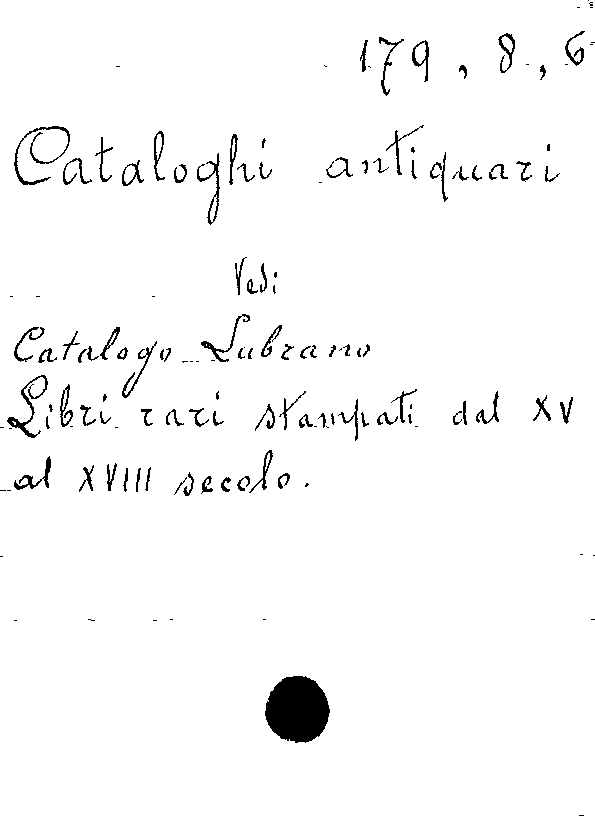 179, 8, 6
Cataloghi antiquari
Vedi
Catalogo Lubrano
Libri rari stampati dal XV
al XVIII secolo.